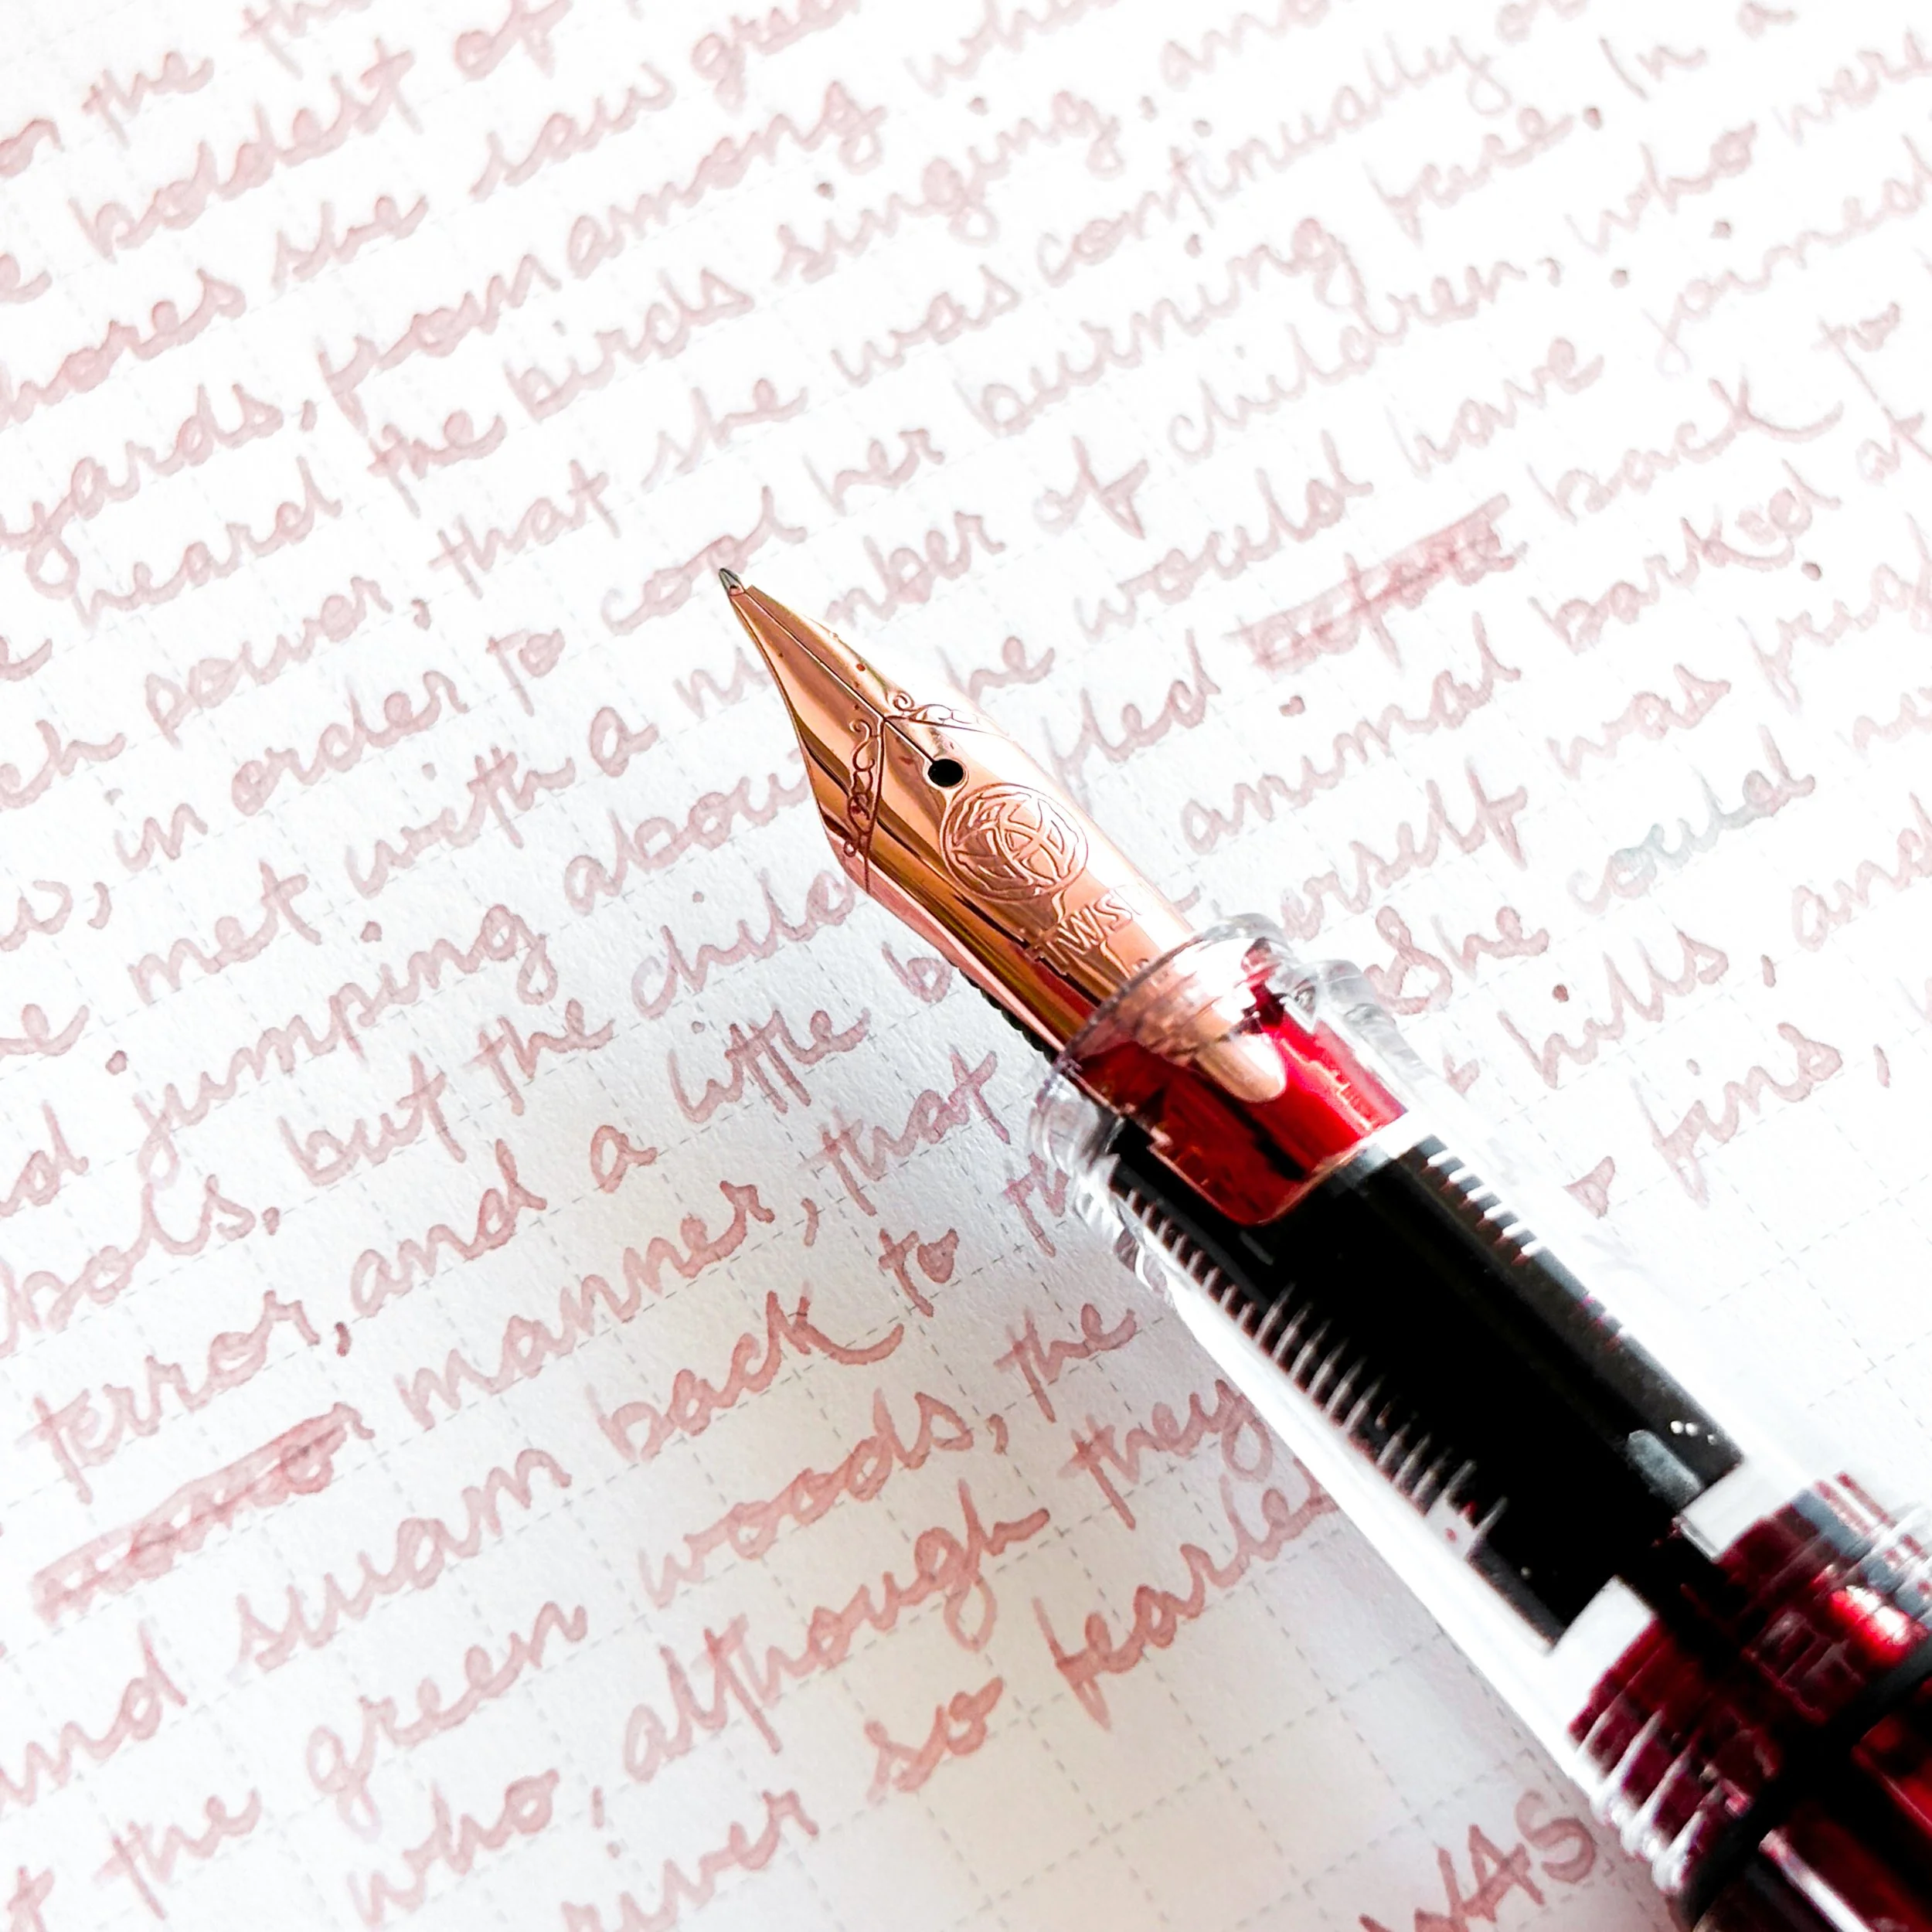 on the
boldest of
she saw gree
yards, from among whe
heard the birds singing, and
ch power, that she was continually
in order to cool her burning face. In a
met with a number of children, who were
nd jumping abou he would have joined
but the child fled before back to
terror, and a little b animal barked at
manner, that erself was frig
and swam back to th She could
t the green woods, the hills, and
who, although they fins,
river so fearles
WAS